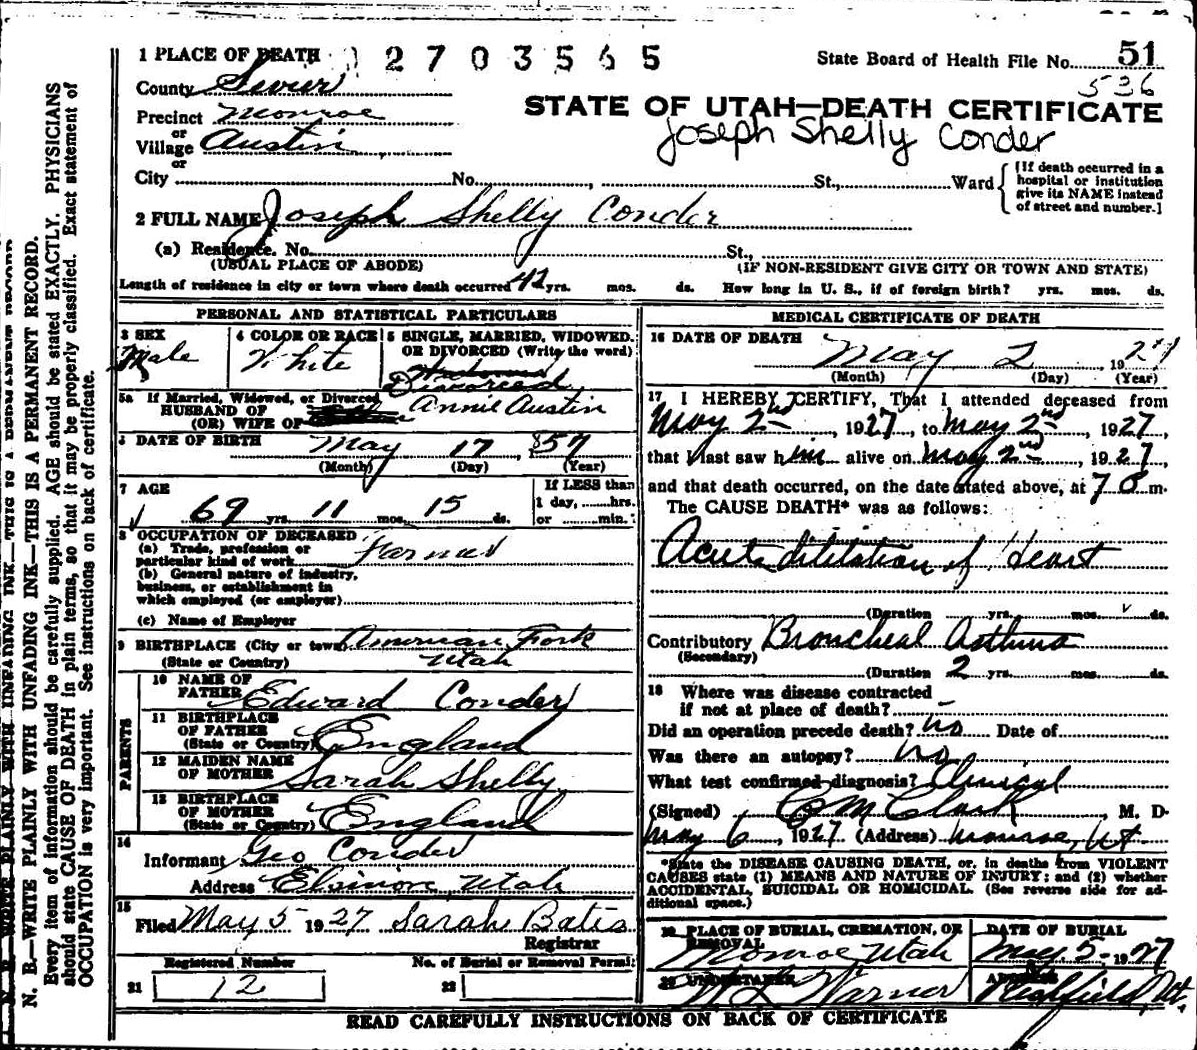 1 PLACE OF DEATH 2703565
State Board of Health File No. 51
536
County Sevier
STATE OF UTAH—DEATH CERTIFICATE
Precinct Monroe
or
Village Austin
Joseph Shelly Conder
or
City No. , St., Ward
[If death occurred in a hospital or institution give its NAME instead of street and number.]
2 FULL NAME Joseph Shelly Conder
(a) Residence. No. St.,
(USUAL PLACE OF ABODE) (IF NON-RESIDENT GIVE CITY OR TOWN AND STATE)
Length of residence in city or town where death occurred 42 yrs. mos. ds. How long in U. S., if of foreign birth? yrs. mos. ds.
PERSONAL AND STATISTICAL PARTICULARS
3 SEX
Male
4 COLOR OR RACE
White
5 SINGLE, MARRIED, WIDOWED, OR DIVORCED (Write the word)
Divorced
5a If Married, Widowed, or Divorced
HUSBAND OF
(OR) WIFE OF Annie Austin
6 DATE OF BIRTH May 17 1857
(Month) (Day) (Year)
7 AGE
69 yrs. 11 mos. 15 ds.
If LESS than
1 day, hrs.
or min.
8 OCCUPATION OF DECEASED
(a) Trade, profession or
particular kind of work Farmer
(b) General nature of industry,
business, or establishment in
which employed (or employer)
(c) Name of Employer
9 BIRTHPLACE (City or town) American Fork
(State or Country) Utah
PARENTS
10 NAME OF
FATHER Edward Conder
11 BIRTHPLACE
OF FATHER
(State or Country) England
12 MAIDEN NAME
OF MOTHER Sarah Shelly
13 BIRTHPLACE
OF MOTHER
(State or Country) England
14
Informant Geo Conder
Address Elsinore, Utah
15
Filed May 5 1927 Sarah Bates
Registrar
Registered Number No. of Burial or Removal Permit
21 12 22
MEDICAL CERTIFICATE OF DEATH
16 DATE OF DEATH May 2 1927
(Month) (Day) (Year)
17 I HEREBY CERTIFY, That I attended deceased from
May 2nd, 1927, to May 2nd, 1927,
that I last saw him alive on May 2nd, 1927,
and that death occurred, on the date stated above, at m.
The CAUSE DEATH* was as follows:
Acute dilitation of Heart
(Duration yrs. mos. ds.
Contributory Broncheal Asthma
(Secondary)
(Duration 2 yrs. mos. ds.
18 Where was disease contracted
if not at place of death?
Did an operation precede death? no Date of
Was there an autopsy? no
What test confirmed diagnosis? Clinical
(Signed) C M Clark, M. D.
May 6, 1927 (Address) Monroe, Ut
*State the DISEASE CAUSING DEATH, or, in deaths from VIOLENT
CAUSES state (1) MEANS AND NATURE OF INJURY; and (2) whether
ACCIDENTAL, SUICIDAL OR HOMICIDAL. (See reverse side for ad-
ditional space.)
19 PLACE OF BURIAL, CREMATION, OR
REMOVAL
Monroe Utah
DATE OF BURIAL
May 5- 1927
20 UNDERTAKER
Warner
ADDRESS
Richfield, Ut.
READ CAREFULLY INSTRUCTIONS ON BACK OF CERTIFICATE
N. B.—WRITE PLAINLY WITH UNFADING INK—THIS IS A PERMANENT RECORD.
Every item of information should be carefully supplied. AGE should be stated EXACTLY. PHYSICIANS
should state CAUSE OF DEATH in plain terms, so that it may be properly classified. Exact statement of
OCCUPATION is very important. See instructions on back of certificate.